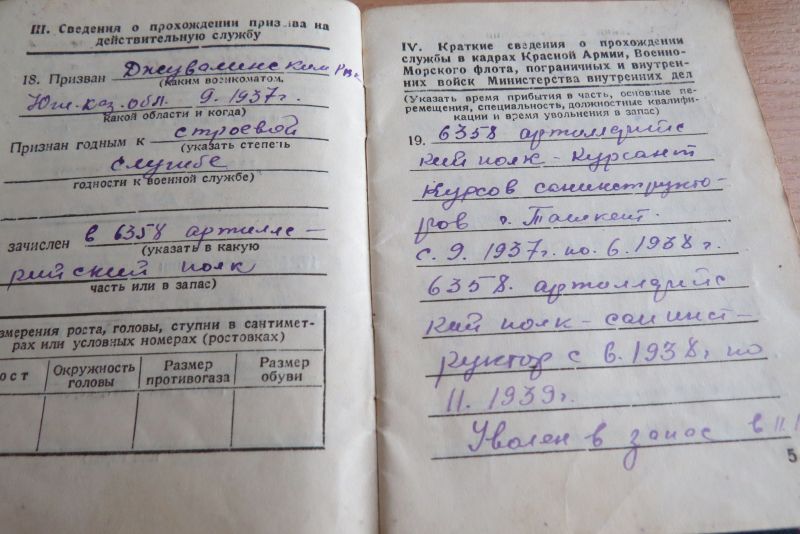 III. Сведения о прохождении призыва на
действительную службу
18. Призван Джувалинским РВК
(каким военкоматом,
Юж-Каз. обл. 9. 1937г.
какой области и когда)
Признан годным к строевой
(указать степень
службе
годности к военной службе)
зачислен в 6358 артилле-
(указать в какую
рийский полк
часть или в запас)
змерения роста, головы, ступни в сантимет-
рах или условных номерах (ростовках)
ост Окружность головы Размер противогаза Размер обуви
IV. Краткие сведения о прохождении
службы в кадрах Красной Армии, Военно-
Морского флота, пограничных и внутрен-
них войск Министерства внутренних дел
(Указать время прибытия в часть, основные пе-
ремещения, специальность, должностные квалифи-
кации и время увольнения в запас)
19. 6358 артиллерийс
кий полк - курсант
курсов санинструкто-
ров г. Ташкент.
с. 9. 1937г. по. 6. 1938 г.
6358. артиллерийс
кий полк - санинст-
руктор с 6. 1938г по
11. 1939г.
Уволен в запас в 11.
5